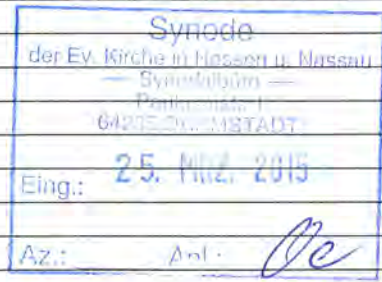 Synode
der Ev. Kirche in Hessen u. Nassau
— Synodalbüro —
64285 DARMSTADT
Eing.: 25. MRZ. 2015
Az.: Anl.: